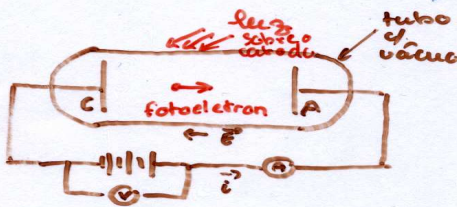 luz
sobre o
catodo
tubo
c/
vácuo
C
A
fotoeletron
E
i
A
V